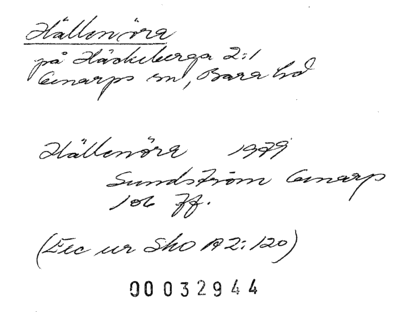 Hällenöra
på Häckeberga 2:1
Genarps sn, Bara hd
Hällenöra 1979
Sundström Genarp
106 ff.
(Exc ur SkO A2:120)
00032944